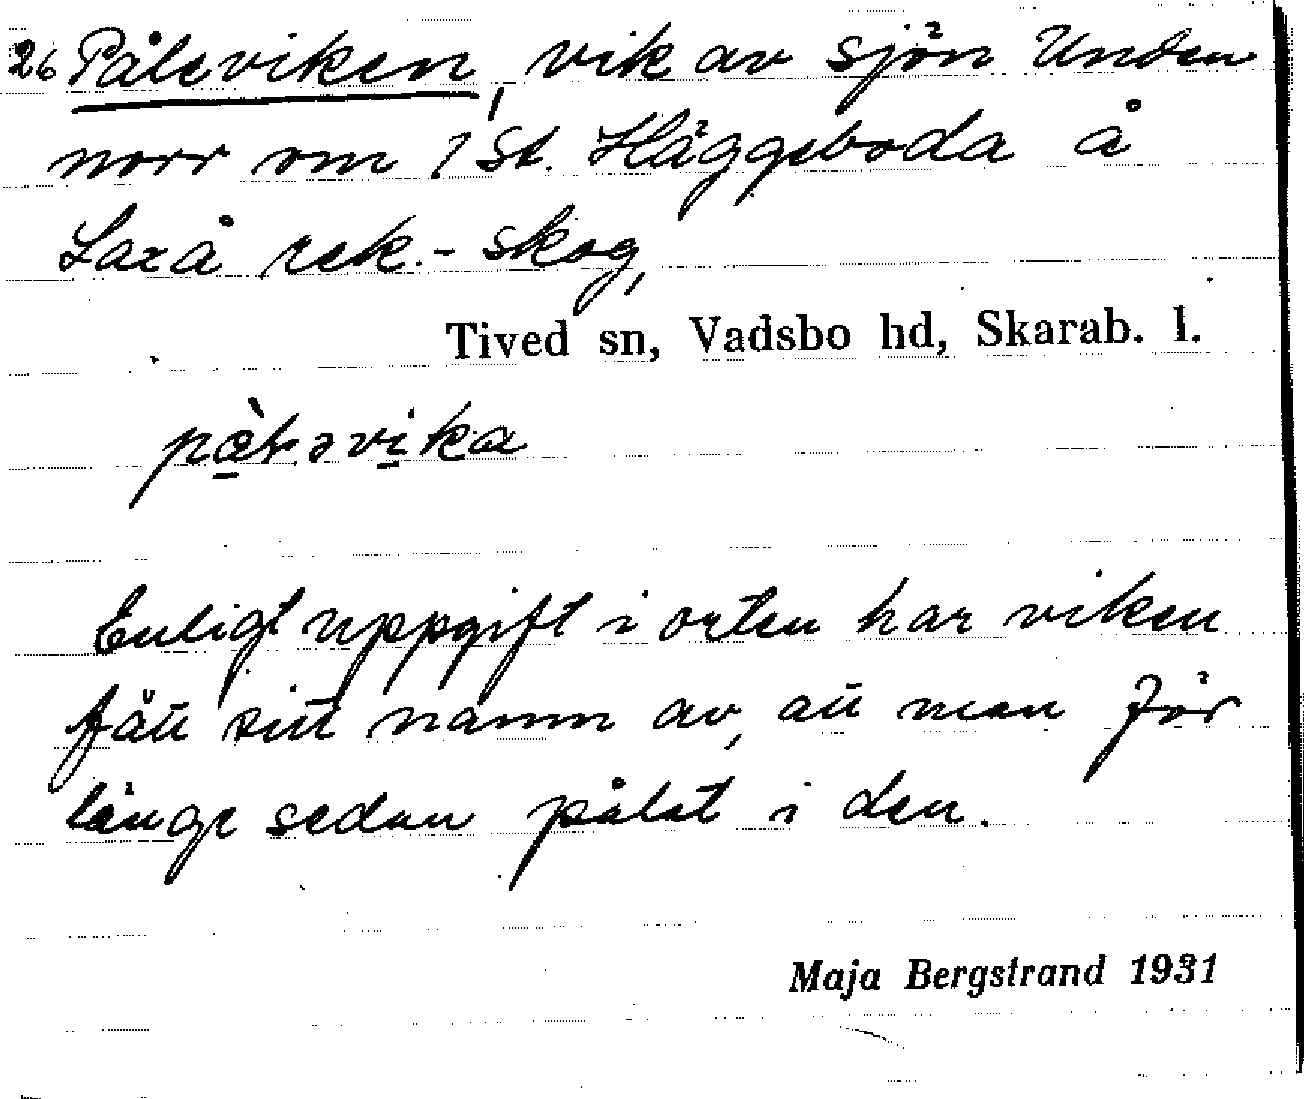 26 Påleviken, vik av sjön Unden
norr om 1 St. Häggeboda å
Laxå rek.-skog,
Tived sn, Vadsbo hd, Skarab. l.
Enligt uppgift i orten har viken
fått sitt namn av, att man för
länge sedan pålat i den.
Maja Bergstrand 1931